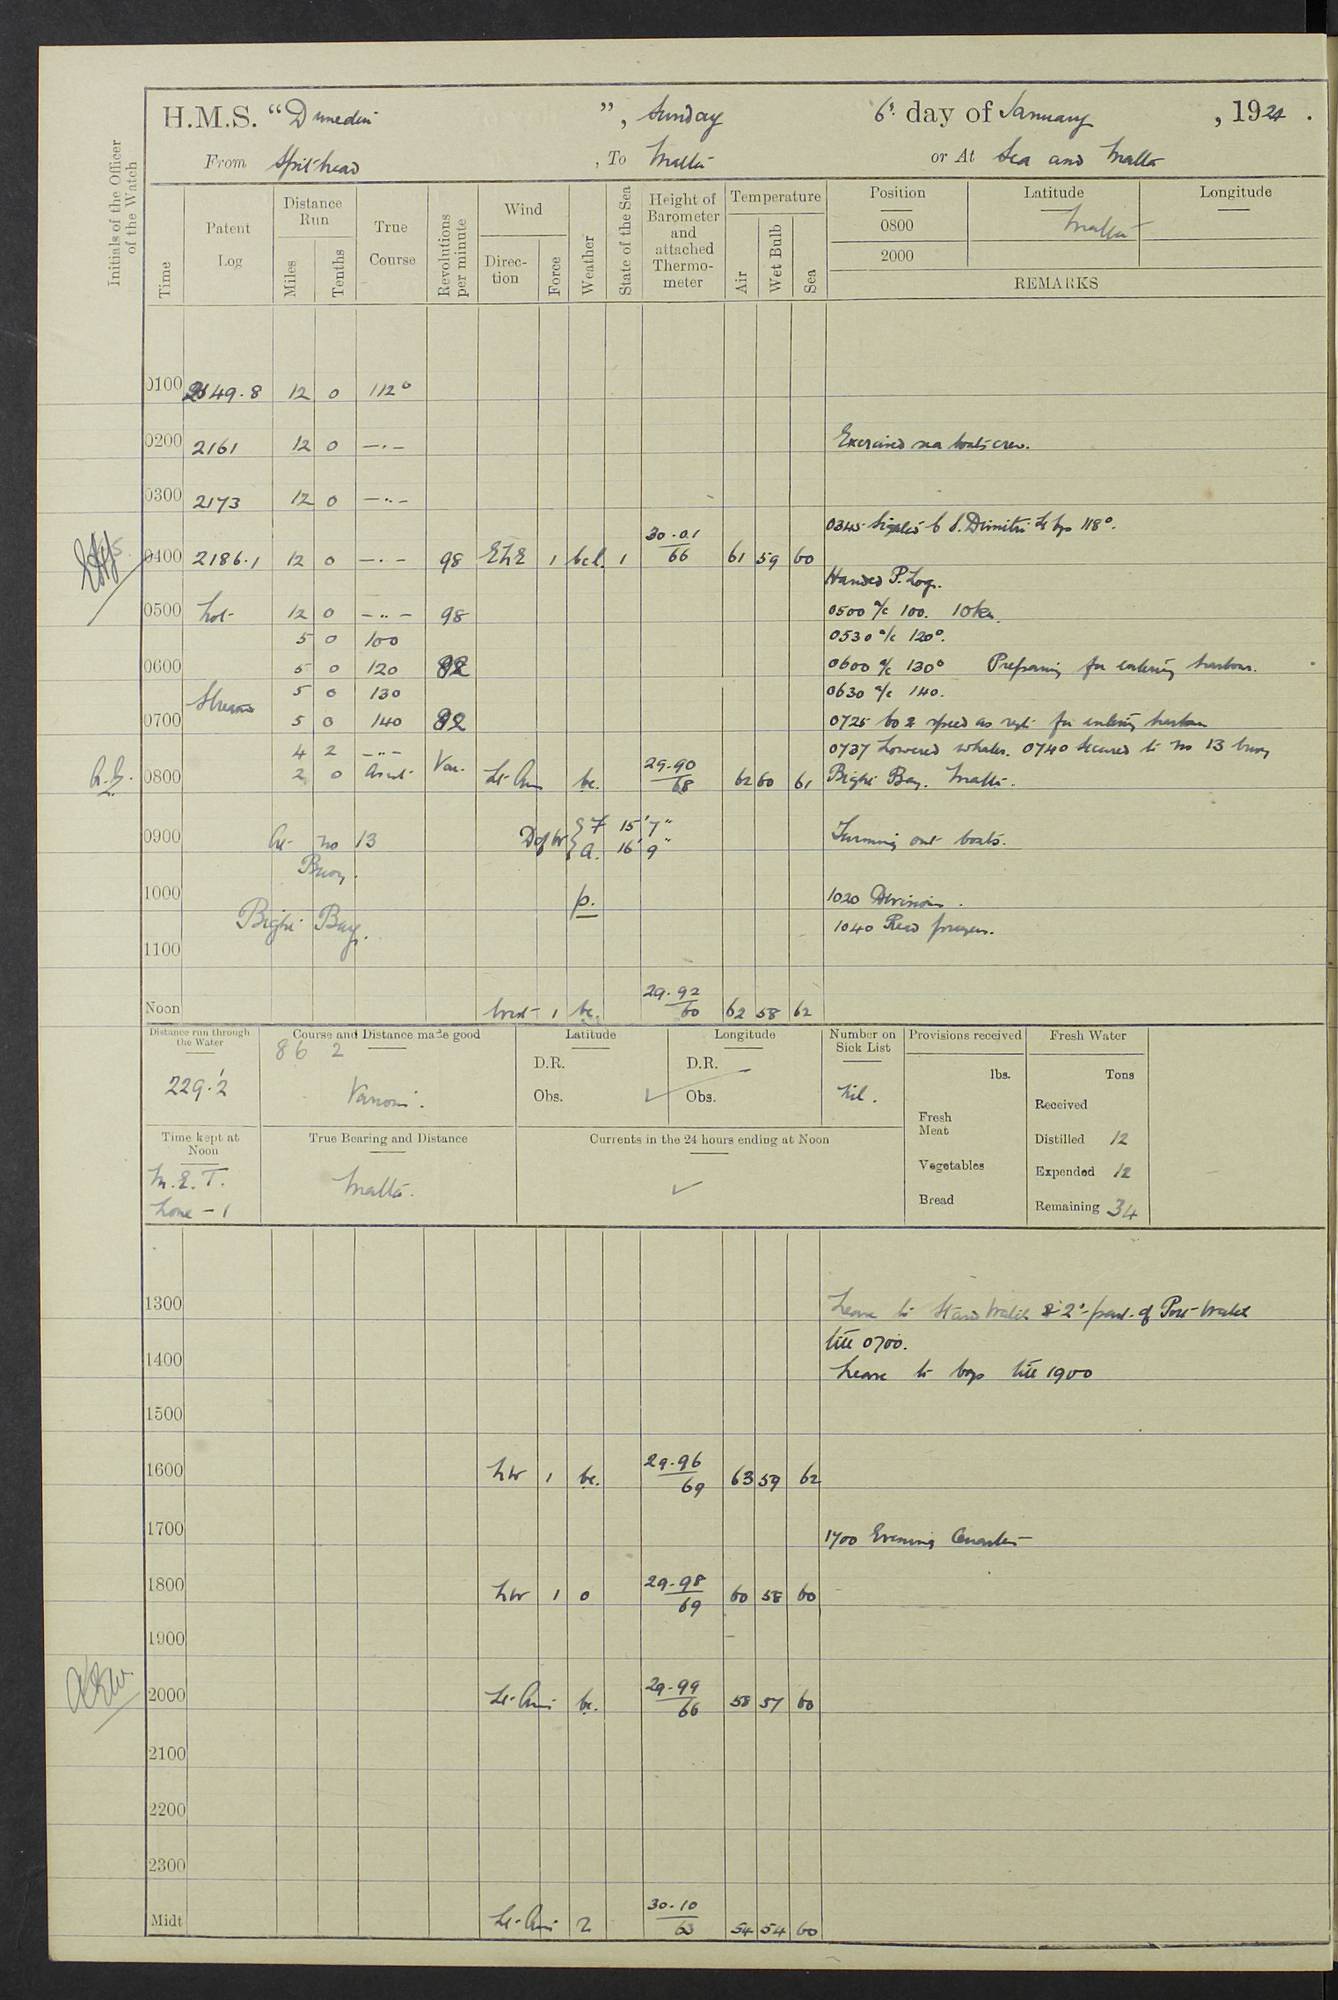 H.M.S. “Dunedin”, Sunday 6th day of January, 1924.
From Spithead, To Malta or At Sea and Malta
Initials of the Officer of the Watch
Time
Patent Log
Distance Run
Miles
Tenths
True Course
Revolutions per minute
Wind
Direction
Force
Weather
State of the Sea
Height of Barometer and attached Thermometer
Temperature
Air
Wet Bulb
Sea
Position Latitude Longitude
0800 Malta
2000
REMARKS
0100 2149.8 12 0 112°
0200 2161 12 0 —·— Exercised sea boats crew.
0300 2173 12 0 —··—
0345 Sighted C d. Dimitri Lt by 118°.
0400 2186.1 12 0 —·— 98 ExE 1 bcl. 1 30.01 / 66 61 59 60
Handed P. Log.
0500 12 0 —··— 98 0500 a/c 100. 10 kn.
5 0 100 0530 a/c 120°.
0600 5 0 120 82 0600 a/c 130° Preparing for entering harbour.
Streamed 5 0 130 0630 a/c 140.
0700 5 0 140 82 0725 Co & speed as reqt for entering harbour
4 2 —··— 0737 Lowered whaler. 0740 Secured to No 13 buoy
0800 2 0 As reqt Var. Lt Airs bc. 29.90 / 68 62 60 61 Bighi Bay. Malta.
0900 At No 13 D of W { F 15' 7" Turning out boats.
Buoy. A. 16' 9"
1000 p. 1020 Divisions.
Bighi Bay. 1040 Read prayers.
1100
Noon West 1 bc. 29.92 / 60 62 58 62
Distance run through the Water
229.'2
Course and Distance made good
86 2
Various.
Latitude
D.R.
Obs.
Longitude
D.R.
Obs.
Number on Sick List
Nil.
Provisions received
lbs.
Fresh Meat
Vegetables
Bread
Fresh Water
Tons
Received
Distilled 12
Expended 12
Remaining 34
Time kept at Noon
M.E.T.
Zone -1
True Bearing and Distance
Malta.
Currents in the 24 hours ending at Noon
1300 Leave to Starbd Watch & 2nd part of Port Watch
till 0700.
1400 Leave to boys till 1900
1500
1600 NW 1 bc. 29.96 / 69 63 59 62
1700 1700 Evening Quarters
1800 NW 1 0 29.98 / 69 60 58 60
1900
2000 Lt Airs bc. 29.99 / 66 58 57 60
2100
2200
2300
Midt Lt Airs 2 30.10 / 63 54 54 60